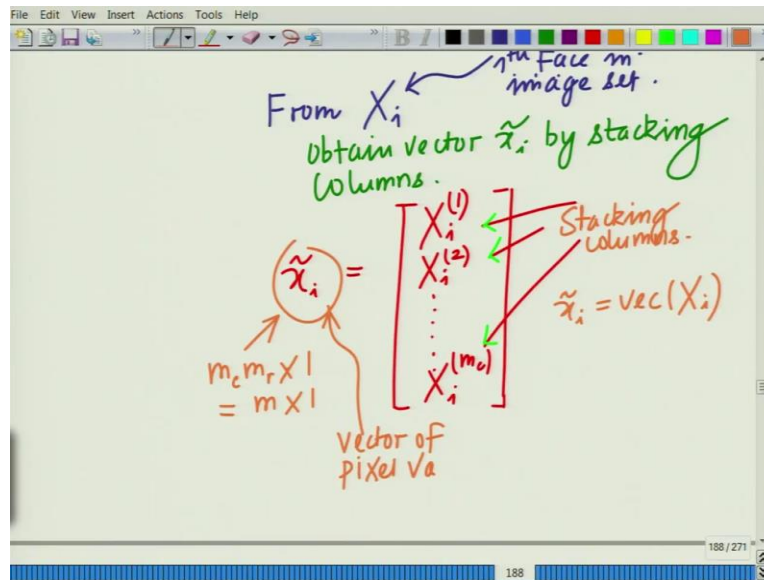 File Edit View Insert Actions Tools Help
B I
ith Face in
image set.
From Xᵢ
obtain vector x̃ᵢ by stacking
columns.
x̃ᵢ = [ Xᵢ⁽¹⁾
Xᵢ⁽²⁾
⋮
Xᵢ⁽ᵐᶜ⁾ ]
Stacking
columns.
x̃ᵢ = vec(Xᵢ)
m_c m_r X 1
= m X 1
vector of
pixel va
188 / 271
188